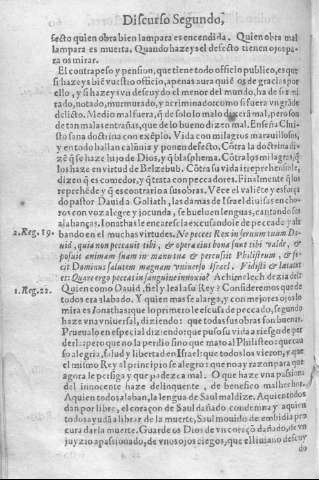 Discurso Segundo,
fecto quien obra bien lampara es encendida. Quien obra mal
lampara es muerta. Quando hazeys el defecto tienen ojos pa-
ra os mirar.
El contrapeso y pension, que tiene todo officio publico, es que
si hazeys biē vuestro officio, apenas aura quiē os de gracias por
ello, y si hazeys vn descuydo el menor del mundo, ha de ser mi
rado, notado, murmurado, y acriminado: como si fuera vn grāde
delicto. Medio mal fuera, q̄ de solo lo malo dixerā mal, pero son
de tan malas entrañas, que de lo bueno dizen mal. Enseña Chri-
sto sana doctrina con exēplo. Vida con milagros marauillosos,
y en todo hallan calūnia y ponen defecto. Cōtra la doctrina di-
zē q̄ se haze hijo de Dios, y q̄ blasphema. Cōtra los milagros, q̄
los haze en virtud de Belzebub. Cōtra su vida irreprehensible,
dizen q̄ es comedor, y q̄ trata con peccadores. Finalmente q̄ lo
reperhēde y q̄ es contrario a sus obras. Vēce el valiēte y esforça
do pastor Dauid a Goliath, las damas de Israel diuisas en cho-
ros con voz alegre y jocunda, se hueluen lenguas, cantando sus
alabanças. Ionathas le encaresce a escusandole de peccado y ala-
2. Reg. 19. bando en el muchas virtudes. Ne pecces Rex in seruum tuum Da-
uid, quia non peccauit tibi, & opera eius bona sunt tibi valde, &
posuit animam suam in manu sua & percussit Philisteum, & fe-
cit Dominus salutem magnam vniuerso Israel. Vidisti & lætatus
es: Quare ergo peccas in sanguine innoxio? Achimelech dezia del:
1. Reg. 22. Quien como Dauid, fiel y leal a su Rey? Consideremos que de
todos era alabado. Y quien mas se alarga, y con mejores ojos lo
mira es Ionathas: que lo primero le escusa de peccado, segundo
haze vna vniuersal, diziendo: que todas sus obras son buenas.
Prueualo en especial diziendo: que puso su vida a riesgo de per
derla: pero que no la perdio sino que mato al Philisteo: que cau
so alegria, salud y libertad en Israel: que todos los vieron, y que
el mismo Rey al principio se alegro: que no ay razon para que
agora le persiga y que padezca mal. O que haze vna passion:
del innocente haze delinquente, de benefico malhechor.
A quien todos alaban, la lengua de Saul maldize. A quien todos
dan por libre, el coraçon de Saul dañado condemna y a quien
todos ayudā a librar de la muerte, Saul mouido de embidia pro
cura darla muerte. Guarde os Dios de vn coraçō dañado, de vn
juyzio apassionado, de vnos ojos ciegos, que el liuiano descuy
do